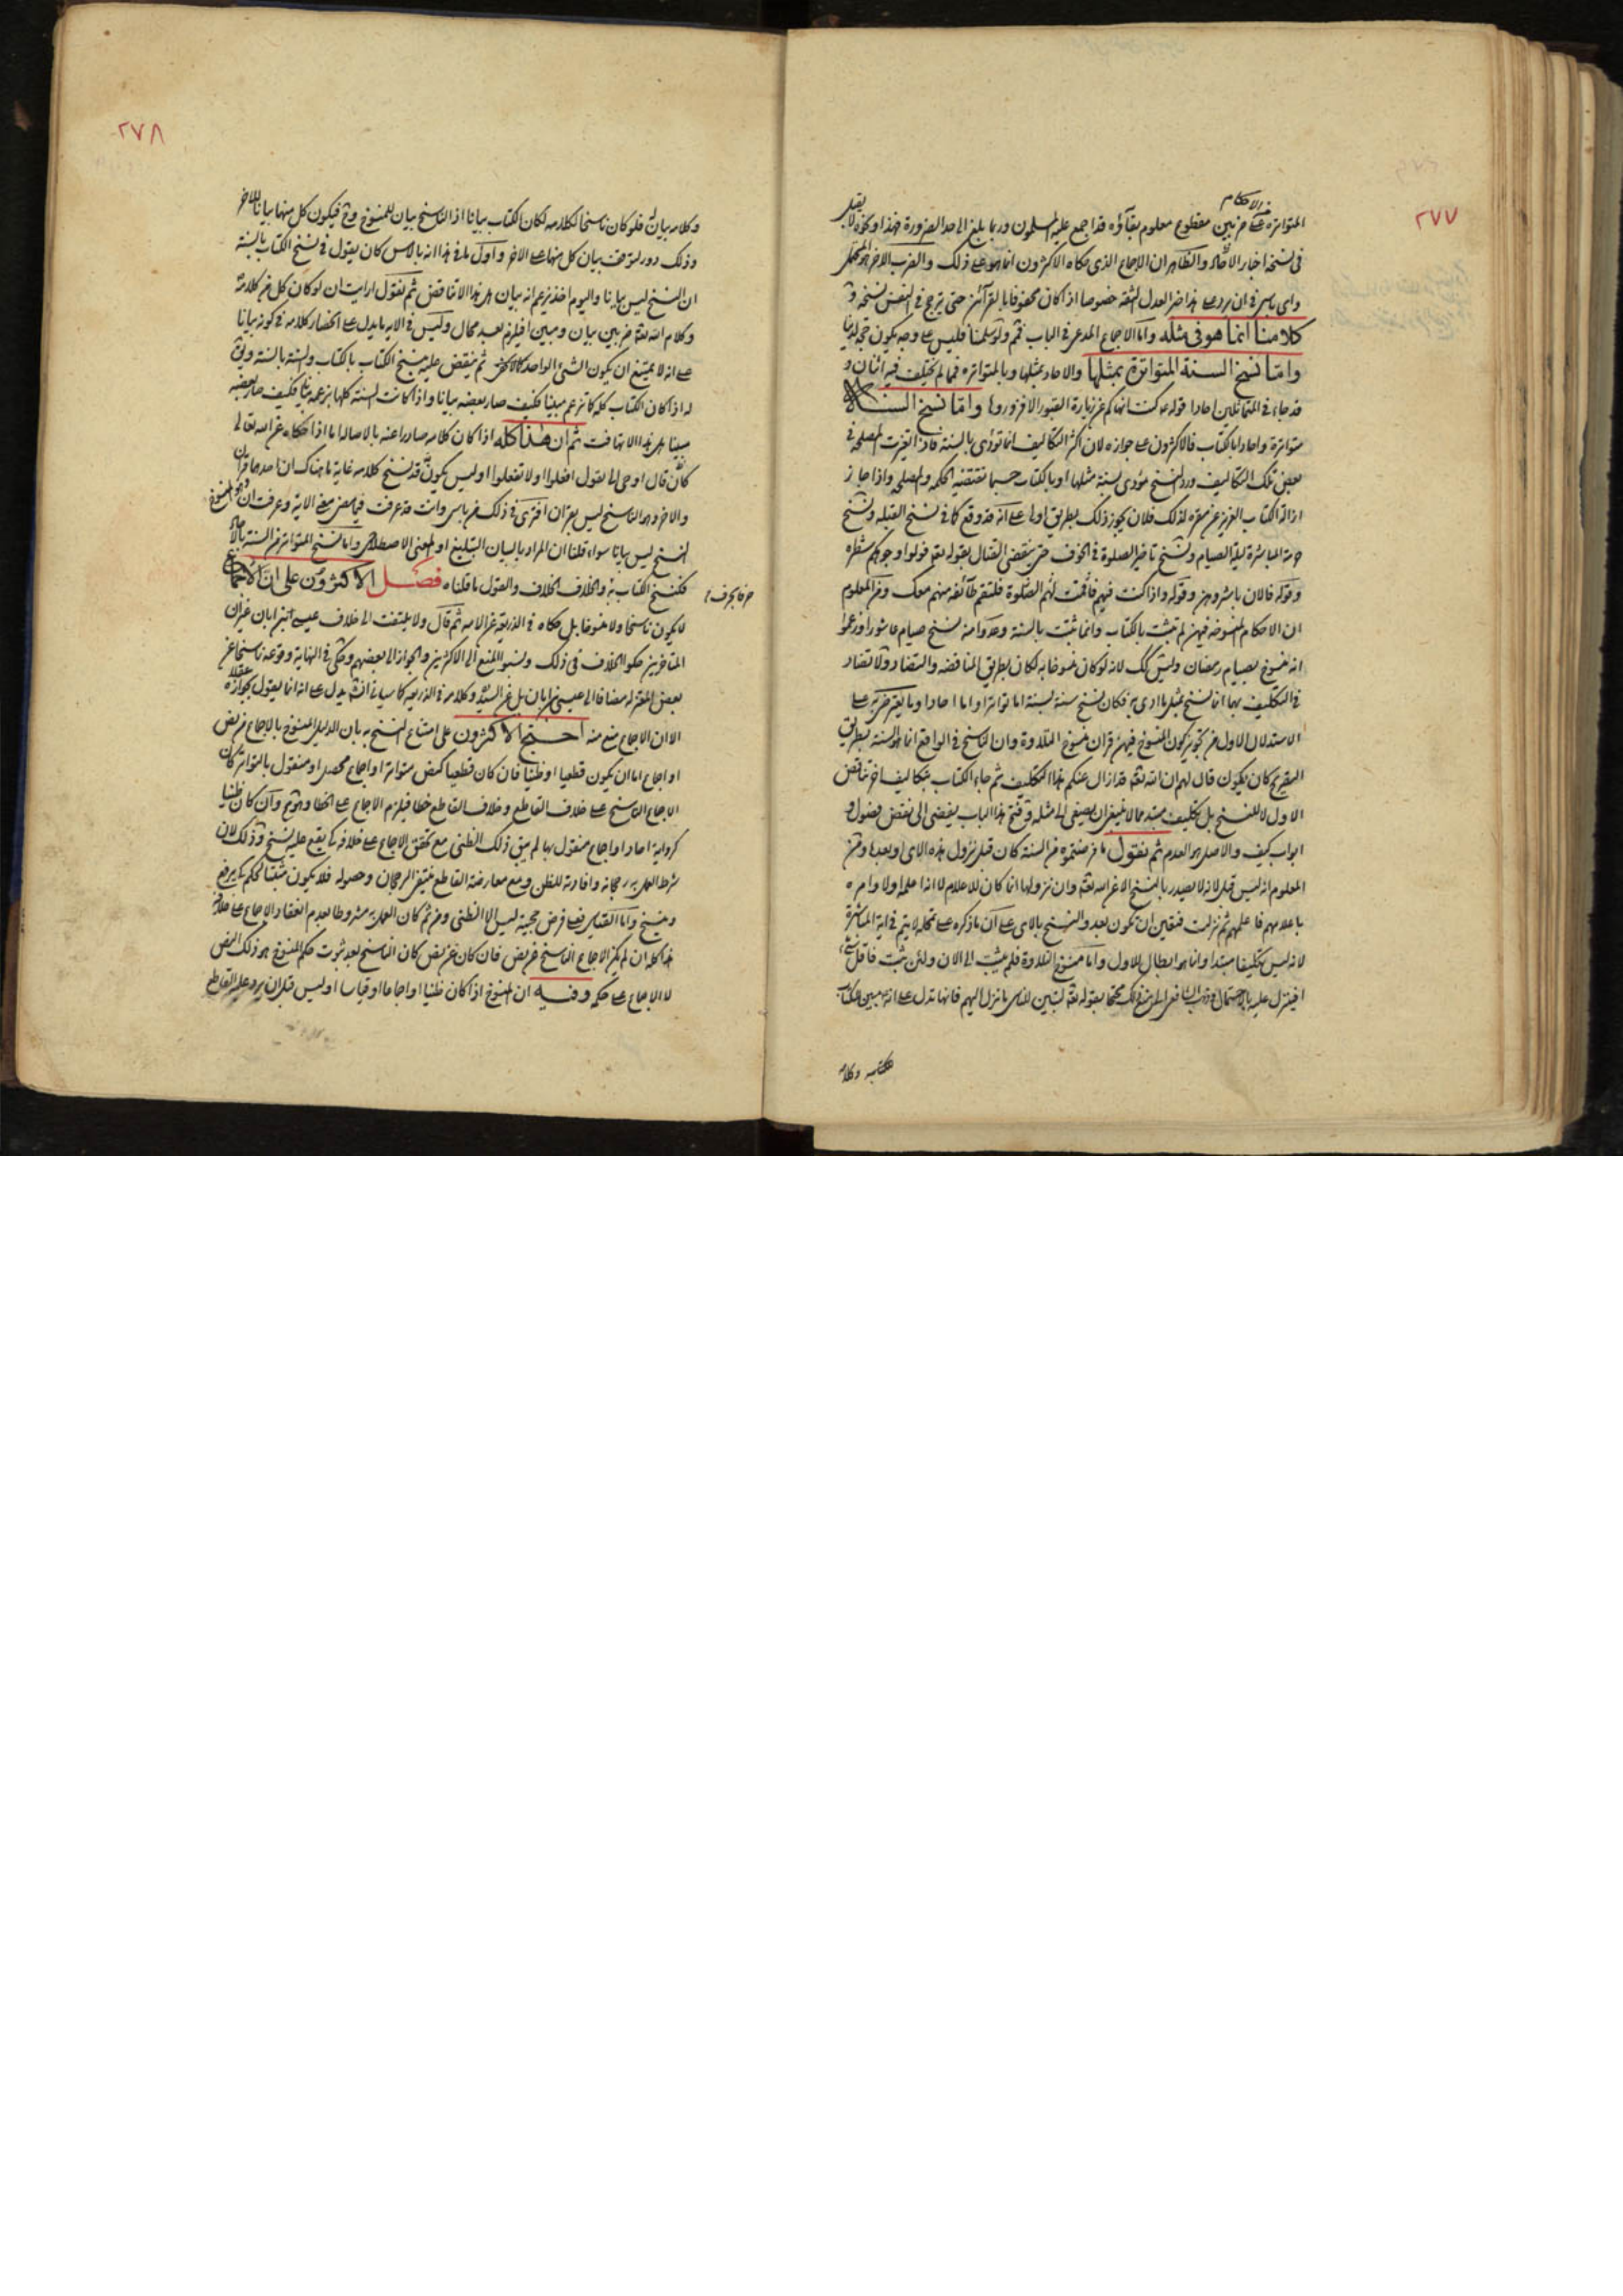 ٢٧٧
من الاحكام
المتواترة على مزبين مقطوع معلوم بقاؤه قد اجمع عليه المسلمون وربما بلغ الى حد الضرورة فهذا ونحوه لا يعقل
في نسخه اخبار الآحاد والظاهر ان الاجماع الذي حكاه الاكثرون انما هو على ذلك والضرب الاخر
واي باس في ان يرد على هذا خبر العدل الثقة خصوصا اذا كان محفوفا بالقرائن حتى ترجح في النفس نسخه و
كلامنا انما هو في مثله واما الاجماع المدعى في الباب فلم ولو سلمنا فليس على وجه يكون حجة لدينا
واما نسخ السنة المتواترة بمثلها والاحاد بمثلها وبالمتواتره فمما لم يختلف فيه اثنان و
قد جاء في المتماثلين احادا قوله ع كنت انهاكم عن زيارة القبور الا فزوروها واما نسخ السنة
متواترة واحادا بالكتاب فالاكثرون على جوازه لان اكثر التكاليف انما تؤدى بالسنة فاذا تغيرت المصلحة في
بعض تلك التكاليف ورد النسخ مؤدى بسنة مثلها او بالكتاب حسبما تقتضيه الحكمه والمصلحه واذا جاز
ازالة الكتاب العزيز عن مقره لذلك فلان يجوز ذلك بطريق اولى على انه قد وقع كما في نسخ القبله ونسخ
حرمة المباشرة ليلة الصيام ونسخ تاخير الصلوة في الخوف حتى ينقضي القتال بقوله تعم فولوا وجوهكم شطره
وقوله فالان باشروهن وقوله واذا كنت فيهم فاقمت لهم الصلوة فلتقم طائفه منهم معك ومن المعلوم
ان الاحكام المنسوخة فيهن لم تثبت بالكتاب وانما ثبتت بالسنة وعدوا منه نسخ صيام عاشورا وزعموا
انه منسوخ بصيام رمضان وليس كك لانه لو كان منسوخا به لكان بطريق المناقضه والتضاد ولا تضاد
في التكليف بهما انما نسخ بمثل ما ادى به فكان نسخ سنة بسنة اما تواترا واما احادا وما يعترض به على
الاستدلال الاول من تجويز كون المنسوخ فيهن قران منسوخ التلاوة وان الناسخ في الواقع انما هو السنة بطريق
التقريح كان يكون قال لهم ان الله تعم قد ازال عنكم هذا التكليف ثم جاء الكتاب بتكاليف اخر تناقض
الاول لا للنسخ بل تكليف مبتدء مما لا ينبغي ان يصغى الى مثله وفتح هذا الباب يفضي الى نقض فصول و
ابواب كيف والاصل هو العدم ثم نقول ما فرضتموه من السنة كان قبل نزول هذه الاي او بعدها ومن
المعلوم انه ليس قبل لانه لا يصدر بالنسخ الا عن الله تعم وان نزولها انما كان للاعلام لا انه اعلم اولا وامره
باعلامهم فاعلمهم ثم نزلت فتعين ان تكون بعد والنسخ بالاي على ان ما ذكره على تمحله لا يتم في اية المباشرة
لانه ليس تكليفا مبتدا وانما هو ابطال للاول واما منسوخ التلاوة فلم يثبت الى الان ولئن ثبت فاقل شيء
افيتنزل عليه بالاحتمال وذهب الشافعي الى منع ذلك محتجا بقوله تعم لتبين للناس ما نزل اليهم فانها تدل على انه مبين للكتاب
وكلامه
٢٧٨
وكلامه بيان فلو كان ناسخا لكلامه لكان الكتاب بيانا اذ الناسخ بيان للمنسوخ وح فيكون كل منهما بيانا للاخر
وذلك دور لتوقف بيان كل منهما على الاخر واول ما في هذا انه بالامس كان يقول في نسخ الكتاب بالسنة
ان النسخ ليس بيانا واليوم اخذ يزعم انه بيان هل هذا الا تناقض ثم نقول ارايت ان لو كان كل من كلامه
وكلام الله تعم مزبين بيان ومبين افيلزم بعد محال وليس في الايه ما يدل على انحصار كلامه في كونه بيانا
على انه لا يمتنع ان يكون الشيء الواحد ثم ينقض عليه بنسخ الكتاب بالكتاب والسنة بالسنة ويق
له اذا كان الكتاب كله كما تزعم مبينا فكيف صار بعضه بيانا واذا كانت السنة كلها بزعمه بيانا فكيف صار بعضه
مبينا هل هذا الا تهافت ثم ان هذا كله اذا كان كلامه صادرا عنه بالاصاله اما اذا حكاه عن الله تعالى
كان قال اوحي الي يقول افعلوا او لا تفعلوا اوليس يكون قد نسخ كلامه غاية ما هناك ان احدهما قران
والاخر وهو الناسخ ليس بقران افترى في ذلك من باس وانت قد عرفت فيما مضى معنى الاية وعرفت ان
النسخ ليس بيانا سواء قلنا ان المراد بالبيان التبليغ او المعنى الاصطلاحي واما نسخ المتواتر من السنة بالآحاد
فكنسخ الكتاب به والخلاف الخلاف والقول ما قلناه فصل الاكثرون على ان الاجماع
حرفا بحرف
لا يكون ناسخا ولا منسوخا بل حكاه في الذريعة عن الامه ثم قال ولا يلتفت الى خلاف عيسى بن ابان غير ان
المتاخرين حكوا الخلاف في ذلك ونسبوا المنع الى الاكثرين والجواز الى بعضهم وحكى في النهاية وقوعه ناسخا عن
بعض المعتزله مضافا الى عيسى بن ابان بل عن السيد وكلامه في الذريعه كما سياتي انشه يدل على انه انما يقول بجوازه عقلا
الا ان الاجماع منع منه احتج الاكثرون على امتناع النسخ به بان الدليل المنسوخ بالاجماع من نص
او اجماع اما ان يكون قطعيا او ظنيا فان كان قطعيا كنص متواتر او اجماع محصل او منقول بالتواتر كان
الاجماع الناسخ على خلاف القاطع وخلاف القاطع خطا فيلزم الاجماع على الخطا وهو مح وان كان ظنيا
كرواية احاد او اجماع منقول بها لم يبق ذلك الظني مع تحقق الاجماع على خلافه كي يقع عليه نسخ وذلك لان
شرط العمل به رجحانه وافادته للظن ومع معارضة القاطع ينتفي الرجحان وحصوله فلا يكون مثبتا لحكم كي يرفع
وينسخ واما القياس فعلى فرض حجيته ليس الا الظني ومن ثم كان العمل به مشروطا بعدم انعقاد الاجماع على خلافه
هذا كله ان لم يكن الاجماع الناسخ عن نص فان كان عن نص كان الناسخ بعد ثبوت حكم المنسوخ هو ذلك النص
لا الاجماع على حكمه وفيه ان المنسوخ اذا كان ظنيا او اجماعا او قياسا اوليس قبل ان يرد عليه القاطع